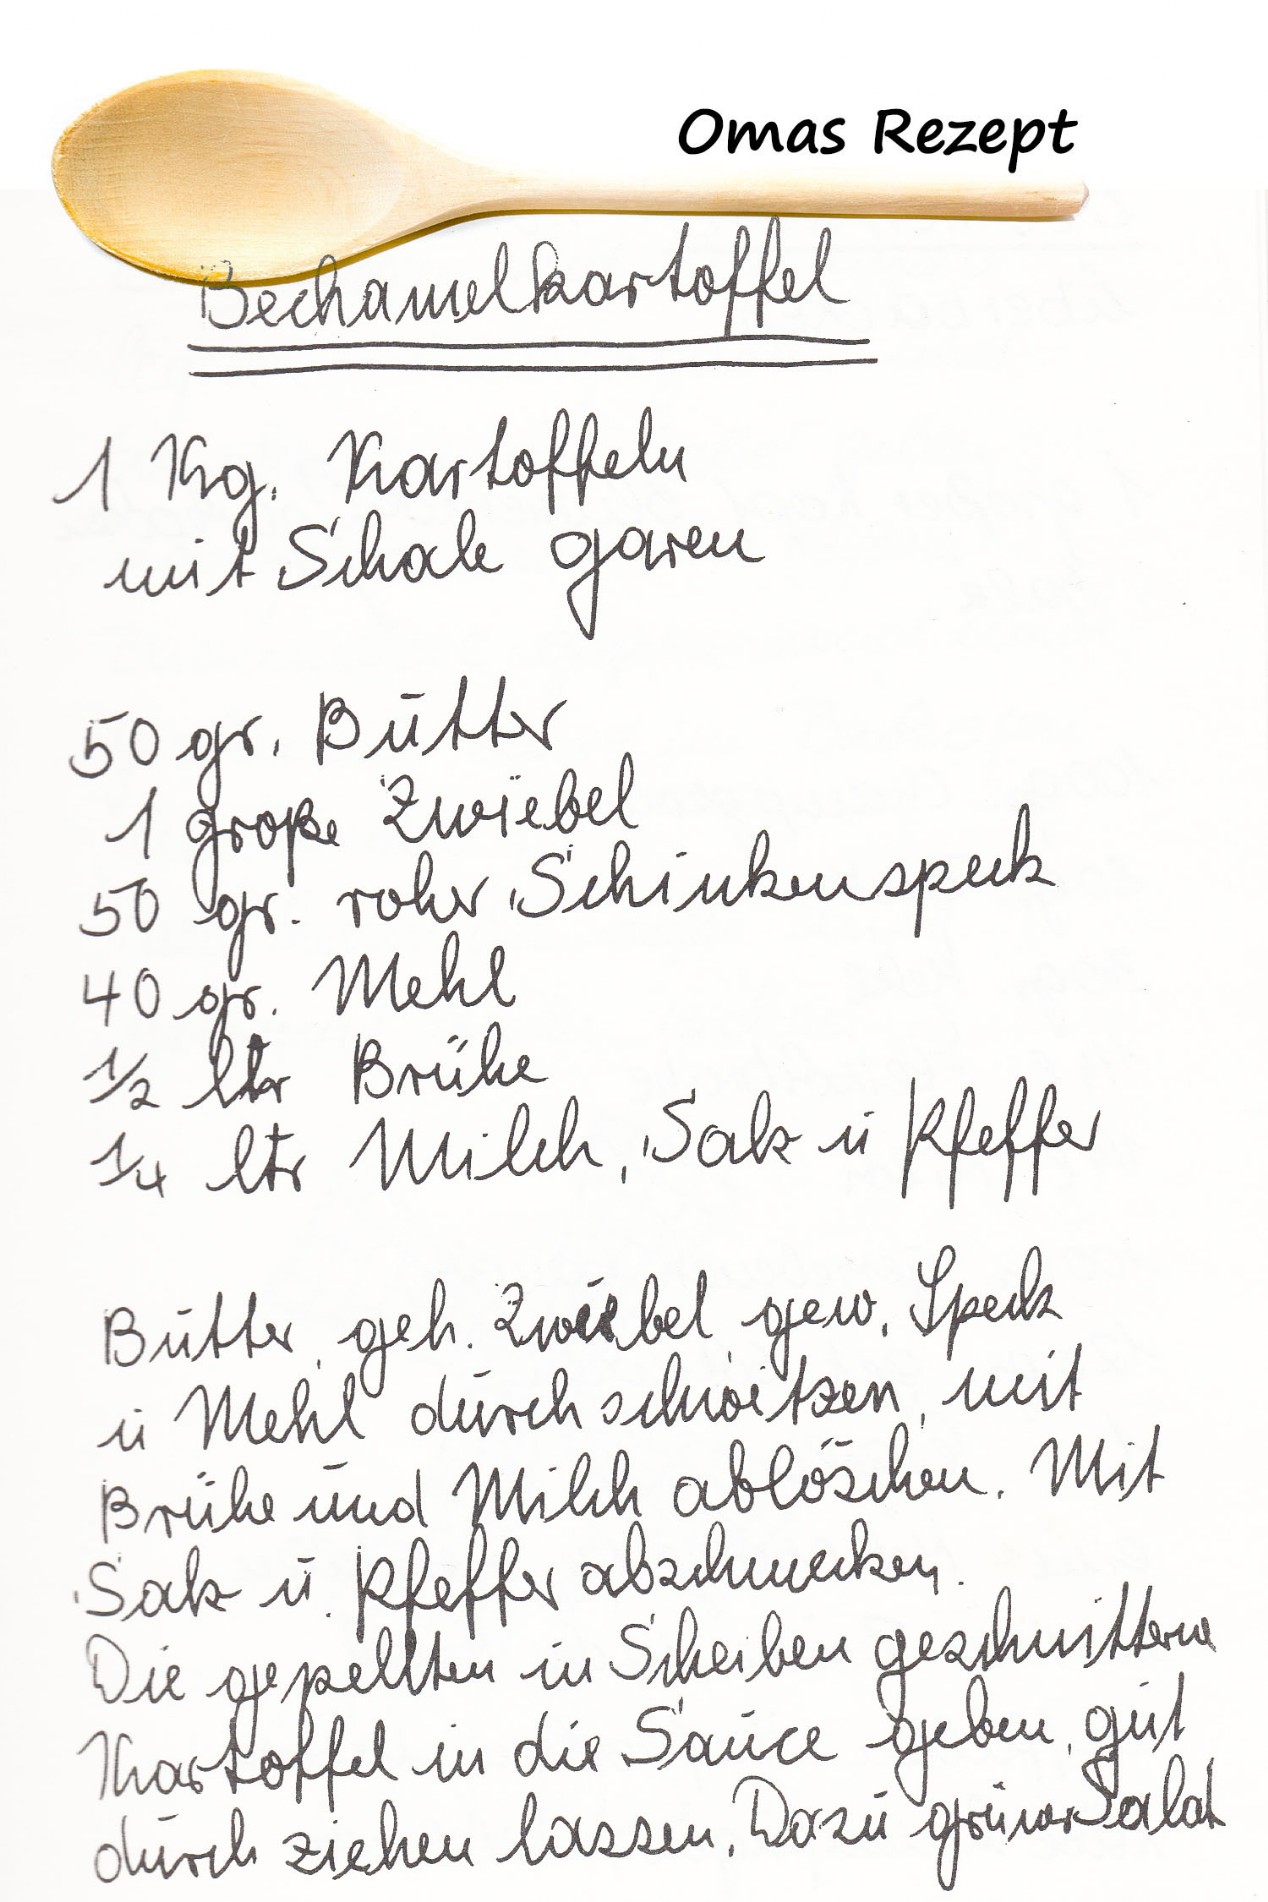 Omas Rezept
Bechamelkartoffel
1 Kg. Kartoffeln
mit Schale garen
50 gr. Butter
1 große Zwiebel
50 gr. roher Schinkenspeck
40 gr. Mehl
1/2 ltr Brühe
1/4 ltr Milch, Salz u Pfeffer
Butter, geh. Zwiebel gew. Speck
u Mehl durchschwitzen, mit
Brühe und Milch ablöschen. Mit
Salz u. Pfeffer abschmecken.
Die gepellten in Scheiben geschnittene
Kartoffel in die Sauce geben, gut
durch ziehen lassen. Dazu grüner Salat